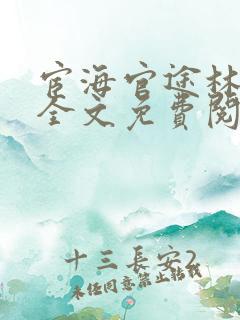 宦海官途林
全文免費閱
十三長安2
未经同意禁止转载